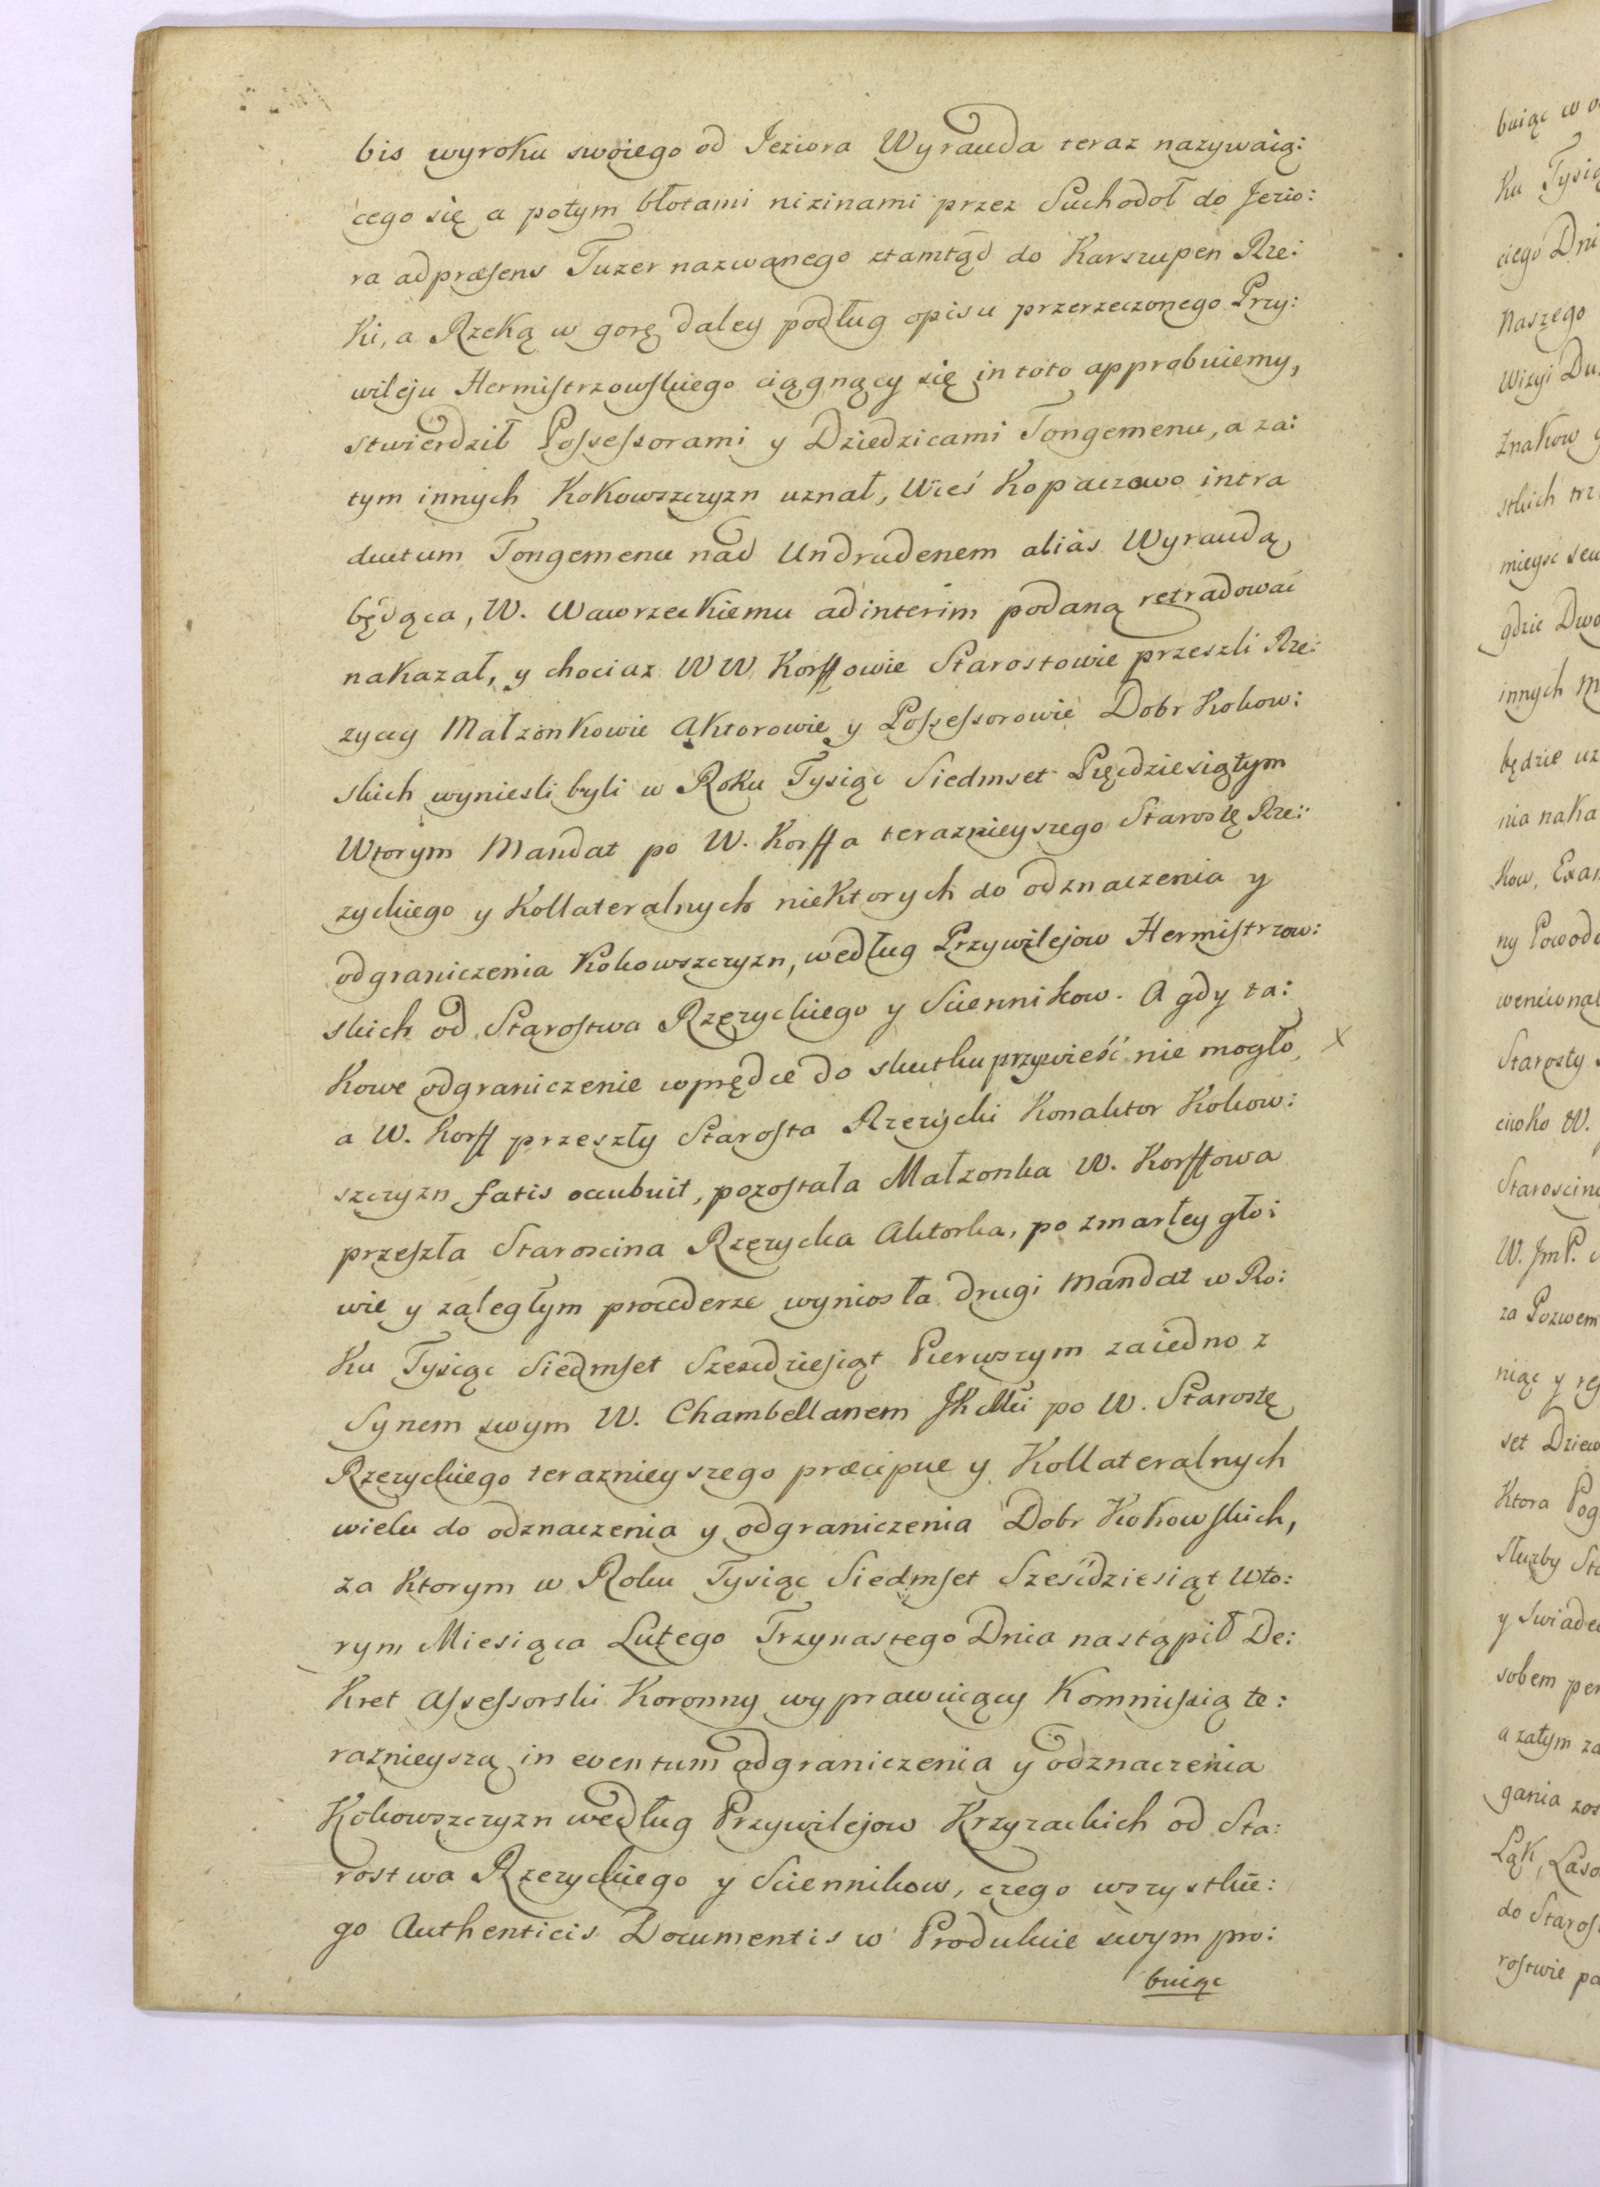 bis wyroku swoiego od Jeziora Wyrauda teraz nazywaią:
cego się a potym błotami nizinami przez Suchodoł do Jezio:
ra ad præsens Tuzer nazwanego ztamtąd do Karszupen Rze:
ki, a Rzeką w gorę daley podług opisu przerzeczonego Przy:
wileju Hermistrzowskiego ciągnący się in toto approbuiemy,
stwierdził Possessorami y Dziedzicami Tongemenu, a za:
tym innych Kokowszczyzn uznał, Wieś Kopaczowo intra
ductum Tongemenu nad Undrudenem alias Wyraudą
będąca, W. Wawrzeckiemu ad interim podaną retradować
nakazał, y chociaz WW Korffowie Starostowie przeszli Rze:
zyccy Małzonkowie Aktorowie y Possessorowie Dobr Kokow:
skich wyniesli byli w Roku Tysiąc Siedmset Pięcdziesiątym
Wtorym Mandat po W. Korffa teraznieyszego Starostę Rze:
zyckiego y Kollateralnych niektorych do odznaczenia y
odgraniczenia Kokowszczyzn, według Przywilejow Hermistrzow:
skich od Starostwa Rzezyckiego y Sciennikow. A gdy ta:
kowe odgraniczenie wprędce do skutku przywieść nie mogło
a W. Korff przeszły Starosta Rzezycki Konaktor Kokow:
szczyzn fatis occubuit, pozostała Małzonka W. Korffowa
przeszła Staroscina Rzezycka Aktorka, po zmarłey gło:
wie y zaległym procederze wyniosła drugi Mandat w Ro:
ku Tysiąc Siedmset Szescdziesiąt Pierwszym zaiedno z
Synem swym W. Chambellanem JKMci po W. Starostę
Rzezyckiego teraznieyszego præcipue y Kollateralnych
wielu do odznaczenia y odgraniczenia Dobr Kokowskich,
za ktorym w Roku Tysiąc Siedmset Sześćdziesiąt Wto:
rym Miesiąca Lutego Trzynastego Dnia nastąpił De:
kret Assessorski Koronny wyprawuiący Kommissią te:
raznieyszą in eventum odgraniczenia y odznaczenia
Kokowszczyzn według Przywilejow Krzyzackich od Sta:
rostwa Rzezyckiego y Sciennikow, czego wszystkie:
go Authenticis Documentis w Produkcie swym pro:
buiąc